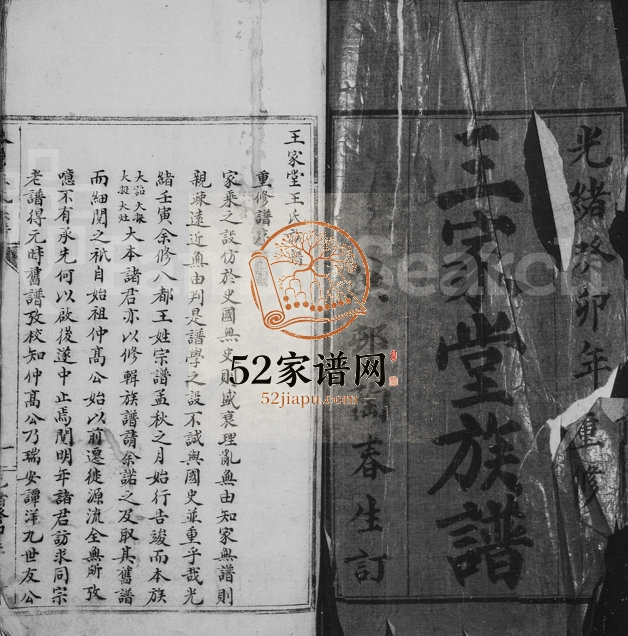 光緒癸卯年重修
王家堂族譜
春生訂
王家堂王氏
重修譜
家乘之設仿於史國無史則盛衰理亂無由知家無譜則
親疎遠近無由判是譜學之設不誠與國史並重乎哉光
緒壬寅余修八都王姓宗譜孟秋之月始行告竣而本族
大本諸君亦以修輯族譜請余諾之及取其舊譜
而細閱之祇自始祖仲高公始以前遷徙源流全無所攷
噫不有承先何以啟後遂中止焉閱明年諸君訪求同宗
老譜得元時舊譜攷校知仲高公乃瑞安譚洋九世友公
52家谱网
52jiapu.com
Search